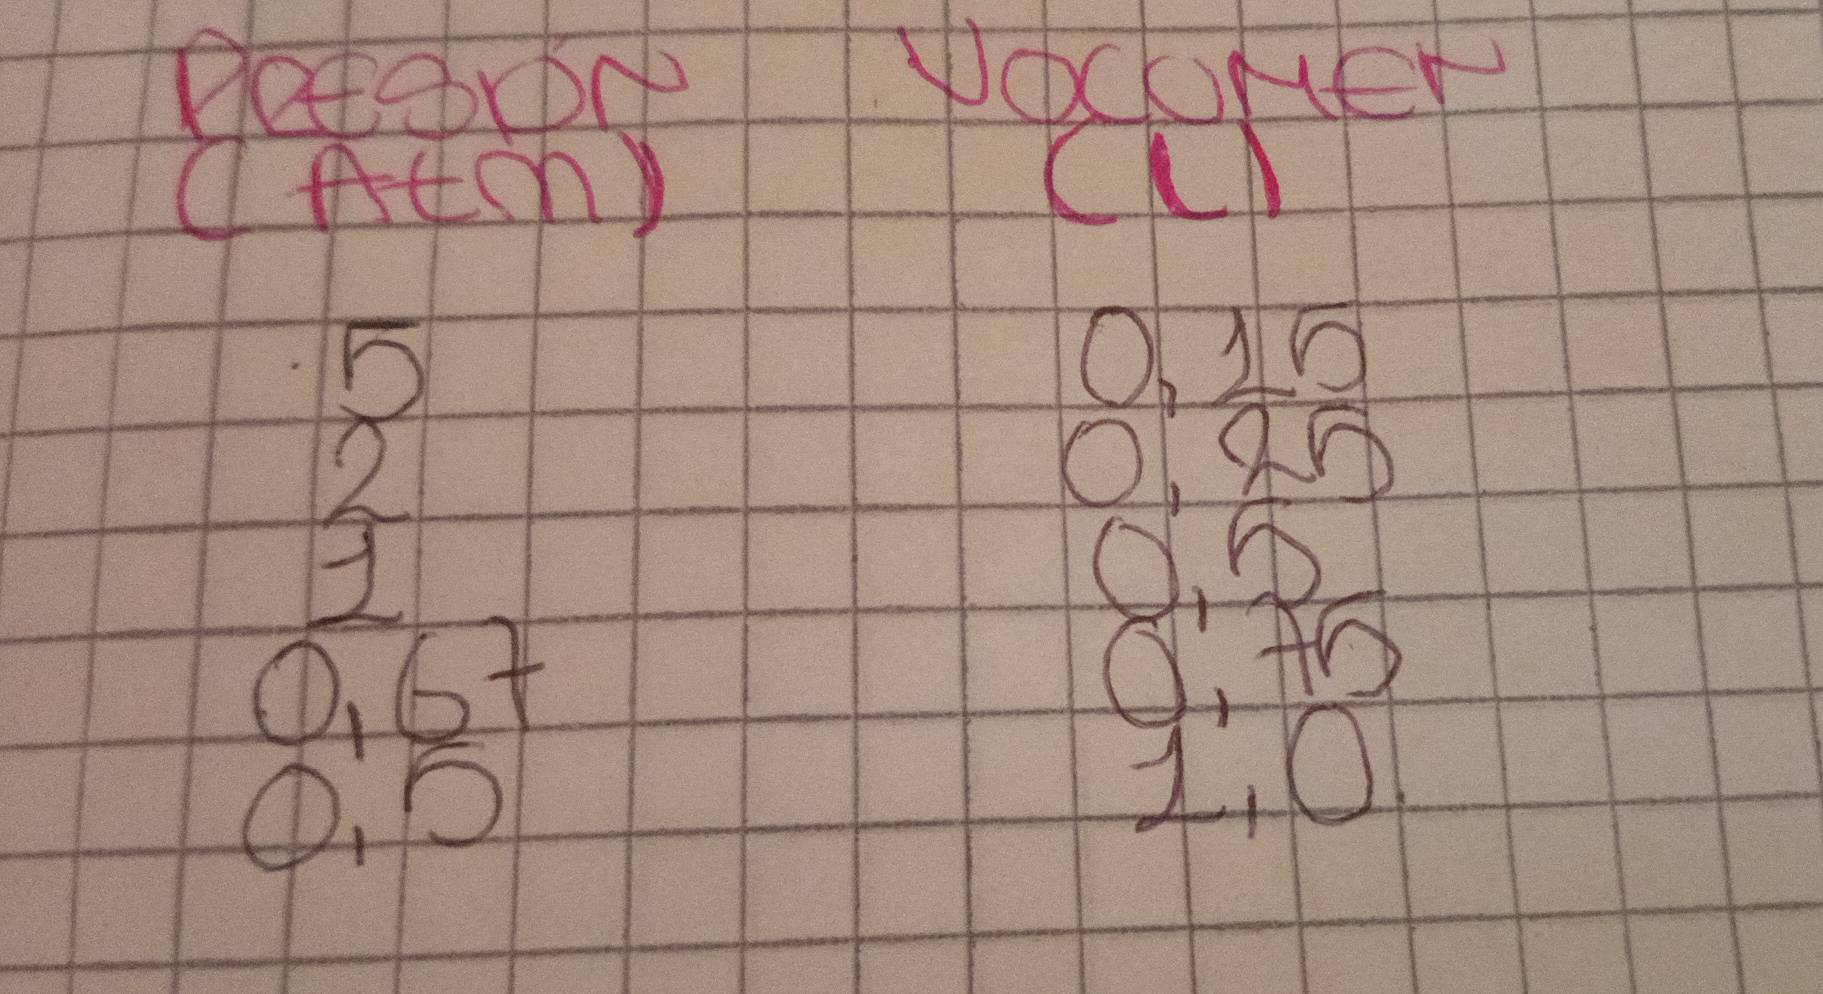 PRESIÓN VOLUMEN
(Atm) (L)
5 0,15
2 0,25
1 0,5
0,67 0,75
0,5 1,0